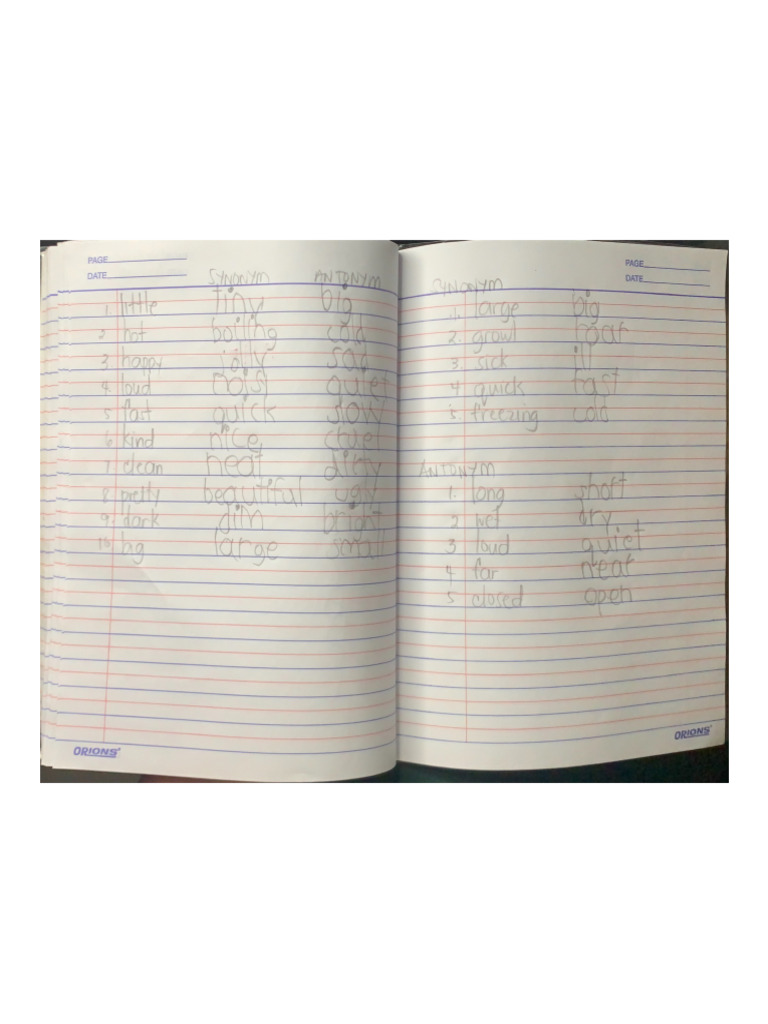 PAGE
DATE
SYNONYM ANTONYM
1. little tiny big
2 hot boiling cold
3 happy jolly sad
4. loud noisy quiet
5 fast quick slow
6 kind nice cruel
7. clean neat dirty
8 pretty beautiful ugly
9. dark dim bright
10. big large small
ORIONS
PAGE
DATE
SYNONYM
1. large big
2. growl roar
3. sick ill
4 quick fast
5. freezing cold
ANTONYM
1. long short
2 wet dry
3 loud quiet
4 far near
5 closed open
ORIONS